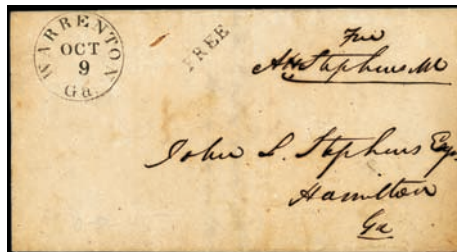 WARRENTON
OCT
9
Ga.
FREE
Free
A H Stephens M
John L. Stephens Esq.
Hamilton
Ga